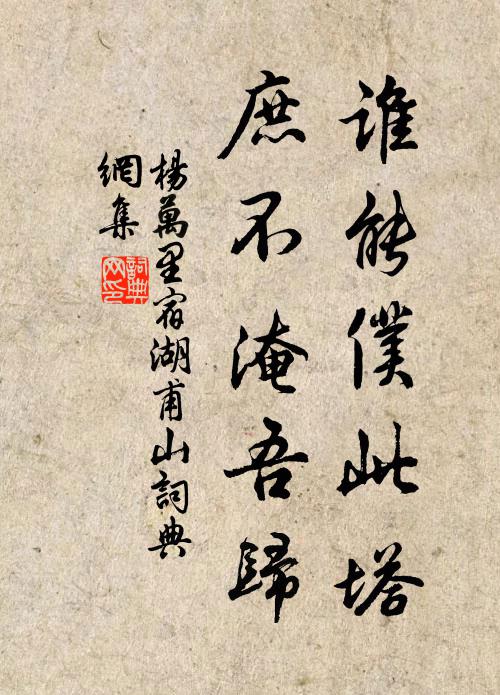 誰能僕此塔
庶不淹吾歸
楊萬里宿湖甫山詞典
網集
詞典
网印